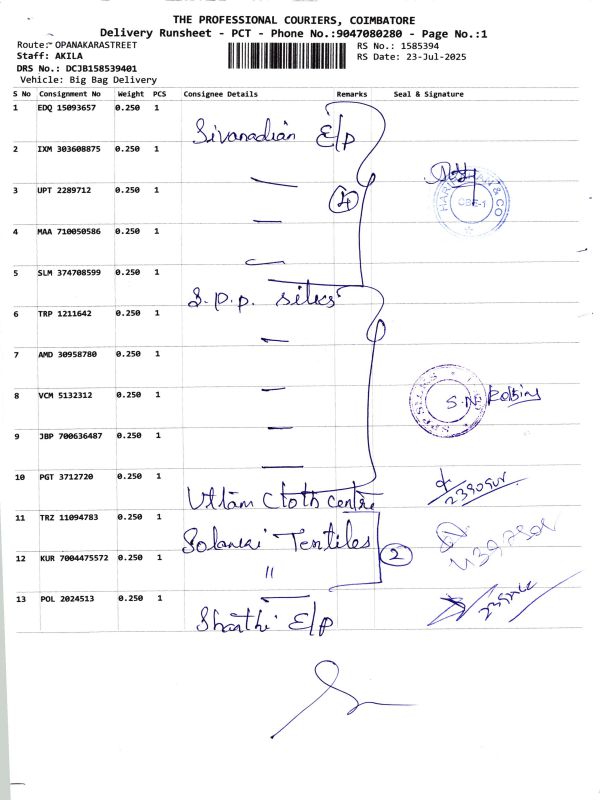 THE PROFESSIONAL COURIERS, COIMBATORE
Delivery Runsheet - PCT - Phone No.:9047080280 - Page No.:1
Route: OPANAKARASTREET
RS No.: 1585394
Staff: AKILA
RS Date: 23-Jul-2025
DRS No.: DCJB158539401
Vehicle: Big Bag Delivery
S No Consignment No Weight PCS Consignee Details Remarks Seal & Signature
1 EDQ 15093657 0.250 1 Sivanadian E/p
2 IXM 303608875 0.250 1
3 UPT 2289712 0.250 1 4 & CO CBE-1
4 MAA 710050586 0.250 1
5 SLM 374708599 0.250 1 S.P.P. silks
6 TRP 1211642 0.250 1
7 AMD 30958780 0.250 1
8 VCM 5132312 0.250 1 S.N.
9 JBP 700636487 0.250 1
10 PGT 3712720 0.250 1 Uttam Cloth centre
11 TRZ 11094783 0.250 1 Solanki Textiles 2
12 KUR 7004475572 0.250 1 "
13 POL 2024513 0.250 1 Shanthi E/p